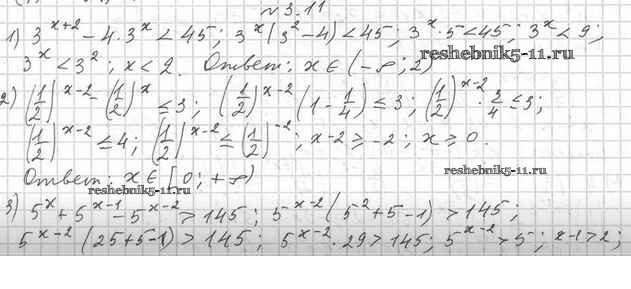 № 3.11
1) 3^(x+2) - 4·3^x < 45; 3^x(3^2 - 4) < 45; 3^x·5 < 45; 3^x < 9;
3^x < 3^2; x < 2. Ответ: x ∈ (-∞; 2)
reshebnik5-11.ru
2) (1/2)^(x-2) - (1/2)^x ≤ 3; (1/2)^(x-2) (1 - 1/4) ≤ 3; (1/2)^(x-2) · 3/4 ≤ 3;
(1/2)^(x-2) ≤ 4; (1/2)^(x-2) ≤ (1/2)^(-2); x-2 ≥ -2; x ≥ 0.
Ответ: x ∈ [0; +∞)
reshebnik5-11.ru
3) 5^x + 5^(x-1) - 5^(x-2) > 145; 5^(x-2) (5^2 + 5 - 1) > 145;
5^(x-2) (25+5-1) > 145; 5^(x-2) · 29 > 145; 5^(x-2) > 5; x-1 > 2;